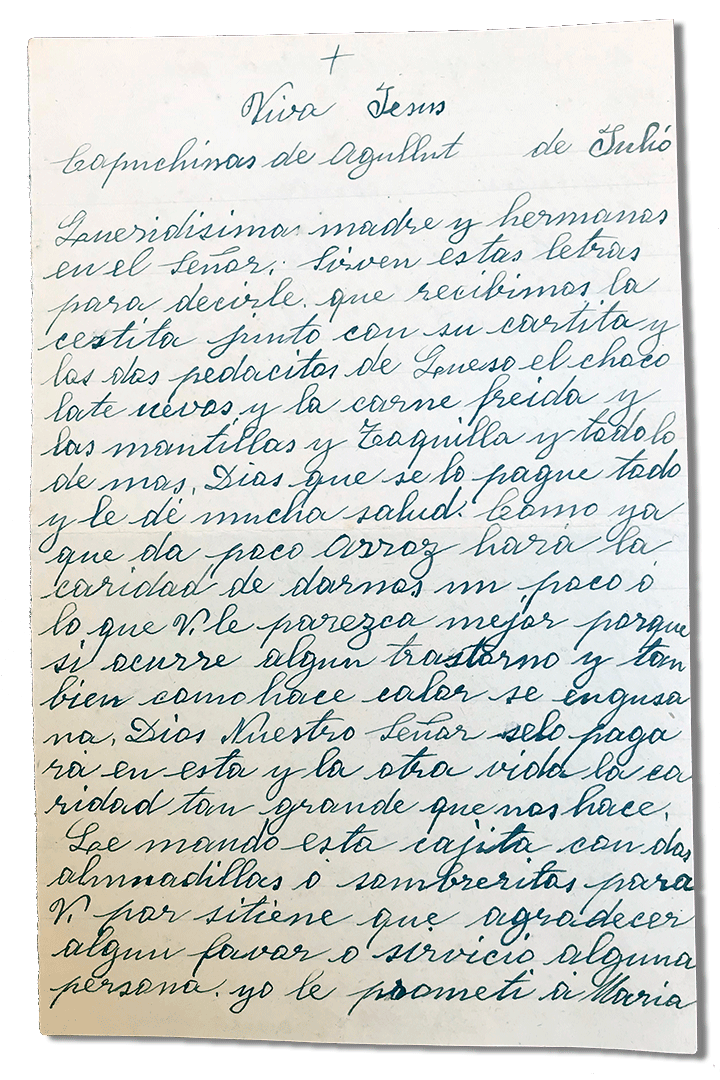 +
Viva Jesus
Capuchinas de Agullut de Julio
Queridisima madre y hermanas
en el Señor: Sirven estas letras
para decirle. que recibimos la
cestita junto con su cartita y
los dos pedacitos de Queso el choco
late uevos y la carne freida y
las mantillas y Toaquilla y todo lo
de mas, Dios que se lo pague todo
y le dé mucha salud. Como ya
que da poco Arroz hará la
caridad de darnos un poco ó
lo que V. le parezca mejor porque
si ocurre algun trastorno y tan
bien como hace calor se engusa
na, Dios Nuestro Señor selo paga
rá en esta y la otra vida la ca
ridad tan grande que nos hace.
Le mando esta cajita con dos
almuadillas ó sombreritos para
V. por sitiene que agradecer
algun favor o servicio alguna
persona. yo le prometi á Maria